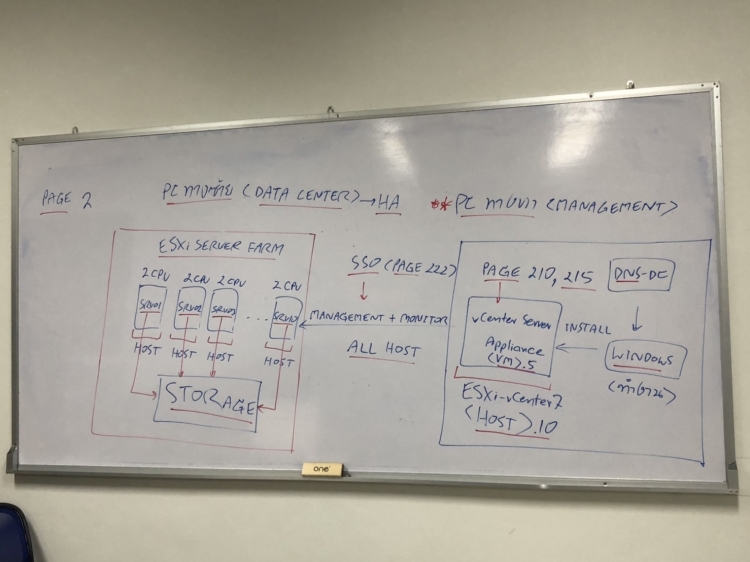 PAGE 2
PC ทางซ้าย (DATA CENTER) → HA
** PC ทางขวา (MANAGEMENT)
ESXi SERVER FARM
2CPU 2CPU 2CPU 2CPU
SRV01 SRV02 SRV03 ...
HOST HOST HOST HOST
STORAGE
SSO (PAGE 222)
MANAGEMENT + MONITOR
ALL HOST
PAGE 210, 215
DNS-DC
vCenter Server
Appliance
(VM).5
INSTALL
WINDOWS
ESXi-vCenter7
(HOST).10
one